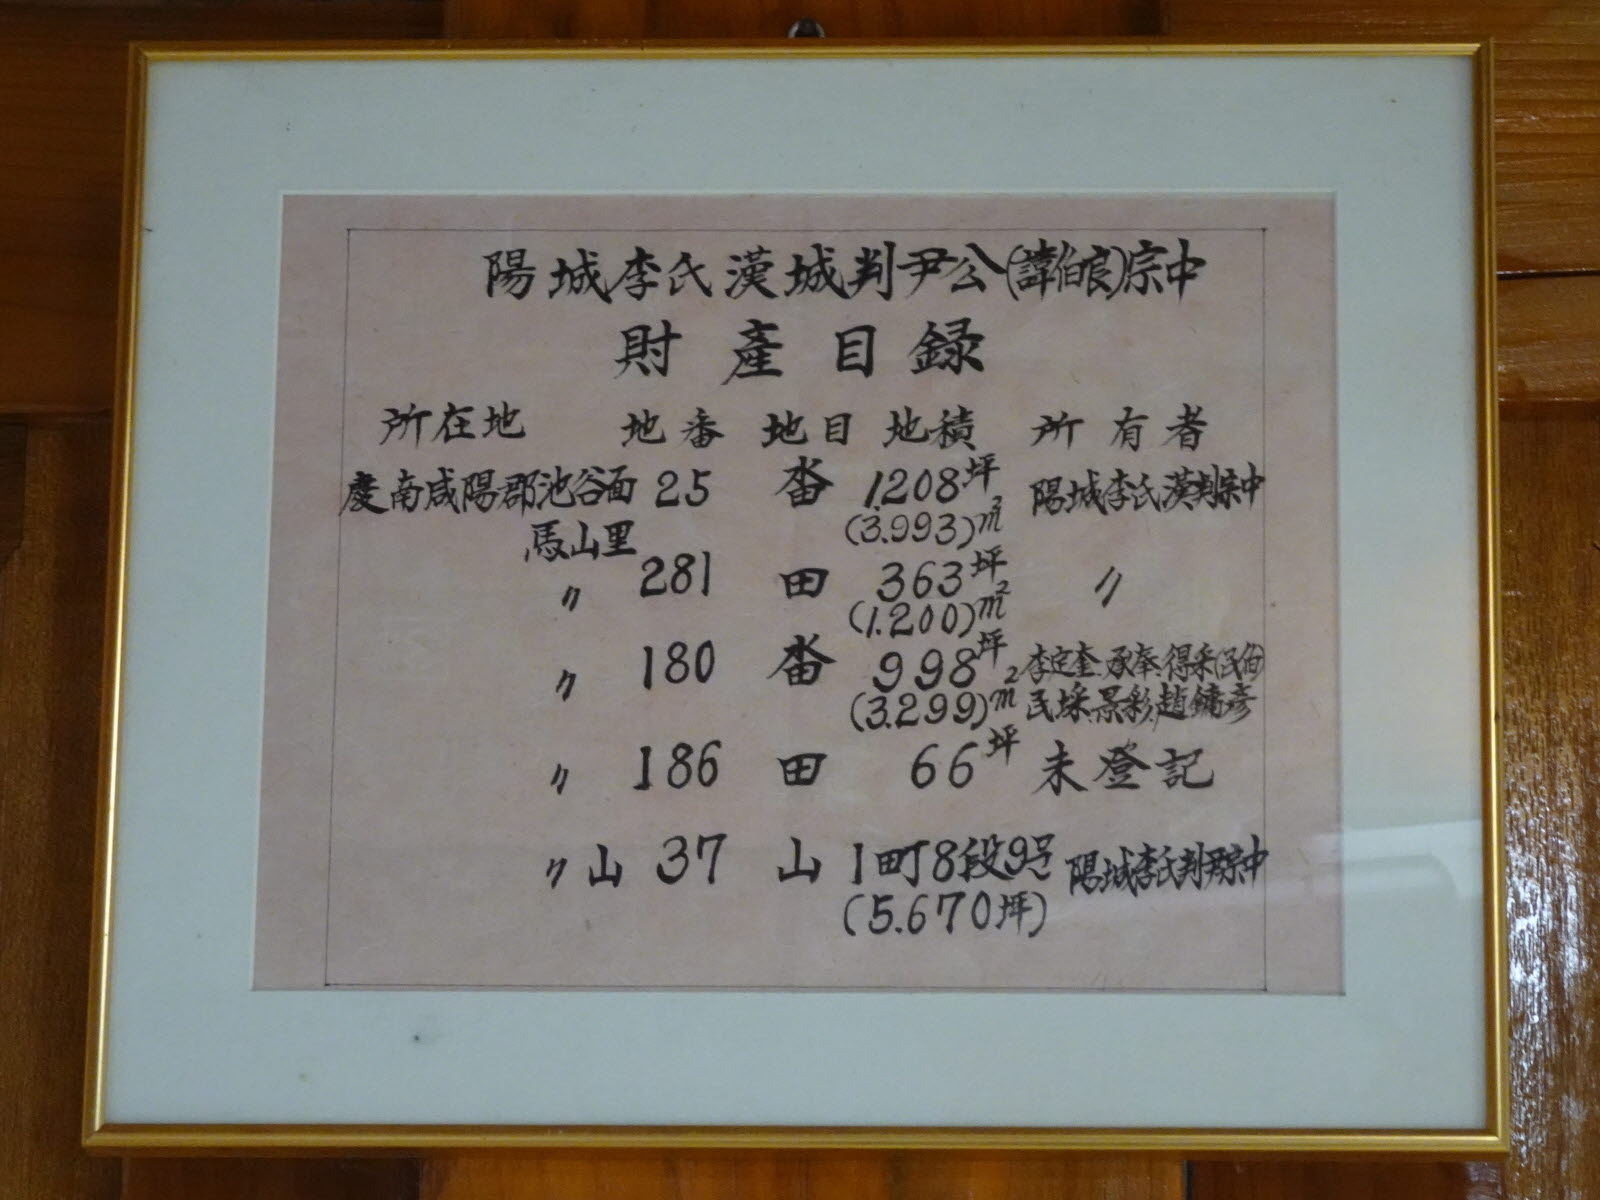 陽城李氏漢城判尹公(諱伯良)宗中
財産目録
所在地 地番 地目 地積 所有者
慶南咸陽郡池谷面 25 畓 1208坪 陽城李氏漢判宗中
馬山里 (3.993)㎡
〃 281 田 363坪 〃
(1.200)㎡
〃 180 畓 998坪 李定奎.承奉.得采(民伯)
(3.299)㎡ 民埰.景彩.趙鏞彦
〃 186 田 66坪 未登記
〃 山 37 山 1町8段9号 陽城李氏判尹宗中
(5.670坪)